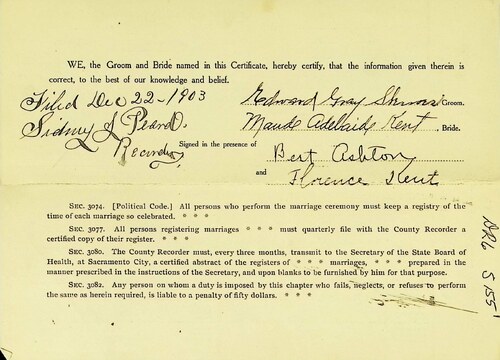 WE, the Groom and Bride named in this Certificate, hereby certify, that the information given therein is
correct, to the best of our knowledge and belief.
Filed Dec 22-1903
Edward Gray Groom.
Sidney J Peard
Maude Adelaide Kent, Bride.
Recorder
Signed in the presence of
Bert Ashton
and
Florence Kent
SEC. 3074. [Political Code.] All persons who perform the marriage ceremony must keep a registry of the
time of each marriage so celebrated. * * *
SEC. 3077. All persons registering marriages * * * must quarterly file with the County Recorder a
certified copy of their register. * * *
SEC. 3080. The County Recorder must, every three months, transmit to the Secretary of the State Board of
Health, at Sacramento City, a certified abstract of the registers of * * * marriages, * * * prepared in the
manner prescribed in the instructions of the Secretary, and upon blanks to be furnished by him for that purpose.
SEC. 3082. Any person on whom a duty is imposed by this chapter who fails, neglects, or refuses to perform
the same as herein required, is liable to a penalty of fifty dollars. * * *